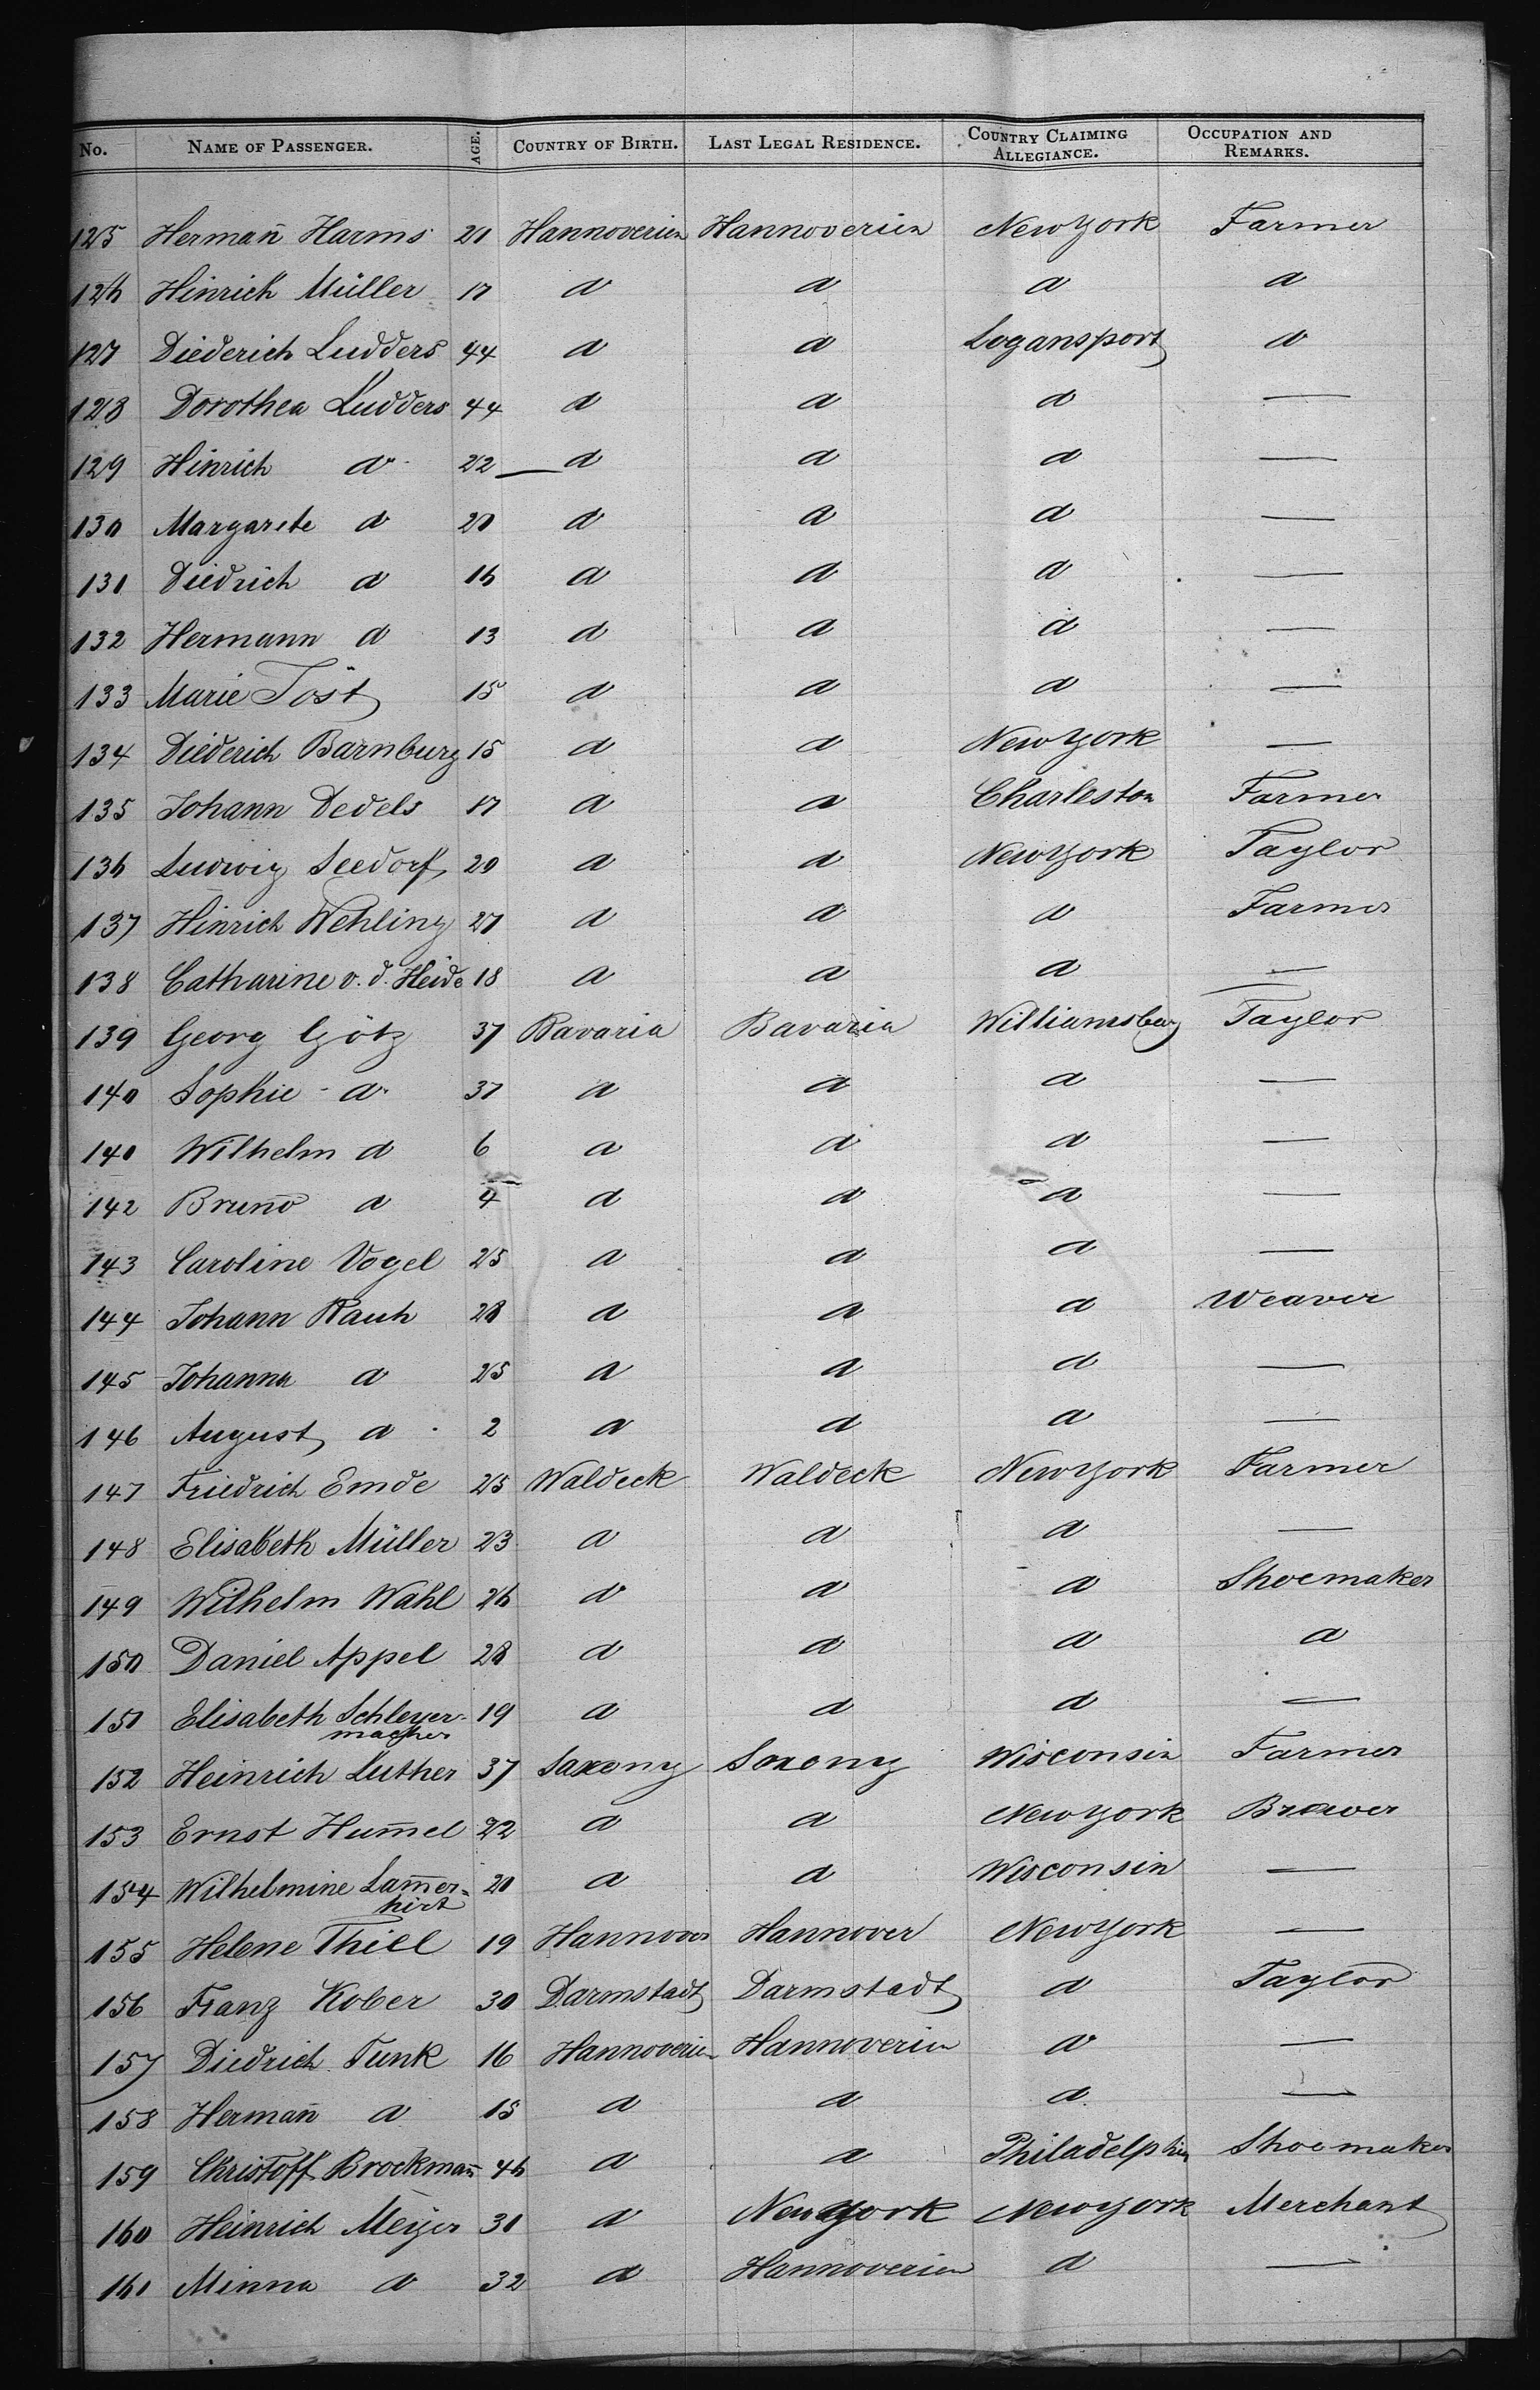 No. NAME OF PASSENGER. AGE. COUNTRY OF BIRTH. LAST LEGAL RESIDENCE. COUNTRY CLAIMING ALLEGIANCE. OCCUPATION AND REMARKS.
125 Herman̄ Harms 21 Hannoverien Hannoverien New York Farmer
126 Hinrich Müller 17 d d d d
127 Diederich Ludders 44 d d Logansport d
128 Dorothea Ludders 44 d d d —
129 Hinrich d 22 d d d —
130 Margarete d 20 d d d —
131 Diedrich d 16 d d d —
132 Hermann d 13 d d d —
133 Marie Töst 15 d d d —
134 Diederich Barnburg 15 d d New York —
135 Johann Dedels 17 d d Charleston Farmer
136 Ludwig Seedorf 20 d d New York Taylor
137 Hinrich Wehling 27 d d d Farmer
138 Catharine v. d. Heide 18 d d d —
139 Georg Götz 37 Bavaria Bavaria Williamsburg Taylor
140 Sophie d 37 d d d —
140 Wilhelm d 6 d d d —
142 Bruno d 4 d d d —
143 Caroline Vogel 25 d d d —
144 Johann Rauh 28 d d d Weaver
145 Johanna d 25 d d d —
146 August d 2 d d d —
147 Friedrich Emde 25 Waldeck Waldeck New York Farmer
148 Elisabeth Müller 23 d d d —
149 Wilhelm Wahl 26 d d d Shoemaker
150 Daniel Appel 28 d d d d
151 Elisabeth Schleyer- 19 d d d —
macher
152 Heinrich Luther 37 Saxony Saxony Wisconsin Farmer
153 Ernst Hum̄el 22 d d New York Brewer
154 Wilhelmine Lam̄er= 20 d d Wisconsin —
hirt
155 Helene Thiel 19 Hannover Hannover New York —
156 Franz Kober 30 Darmstadt Darmstadt d Taylor
157 Diedrich Funk 16 Hannoverien Hannoverien d —
158 Herman̄ d 15 d d d —
159 Christoff Brockman̄ 46 d d Philadelphia Shoemaker
160 Heinrich Meyer 31 d New York New York Merchant
161 Minna d 32 d Hannoverien d —